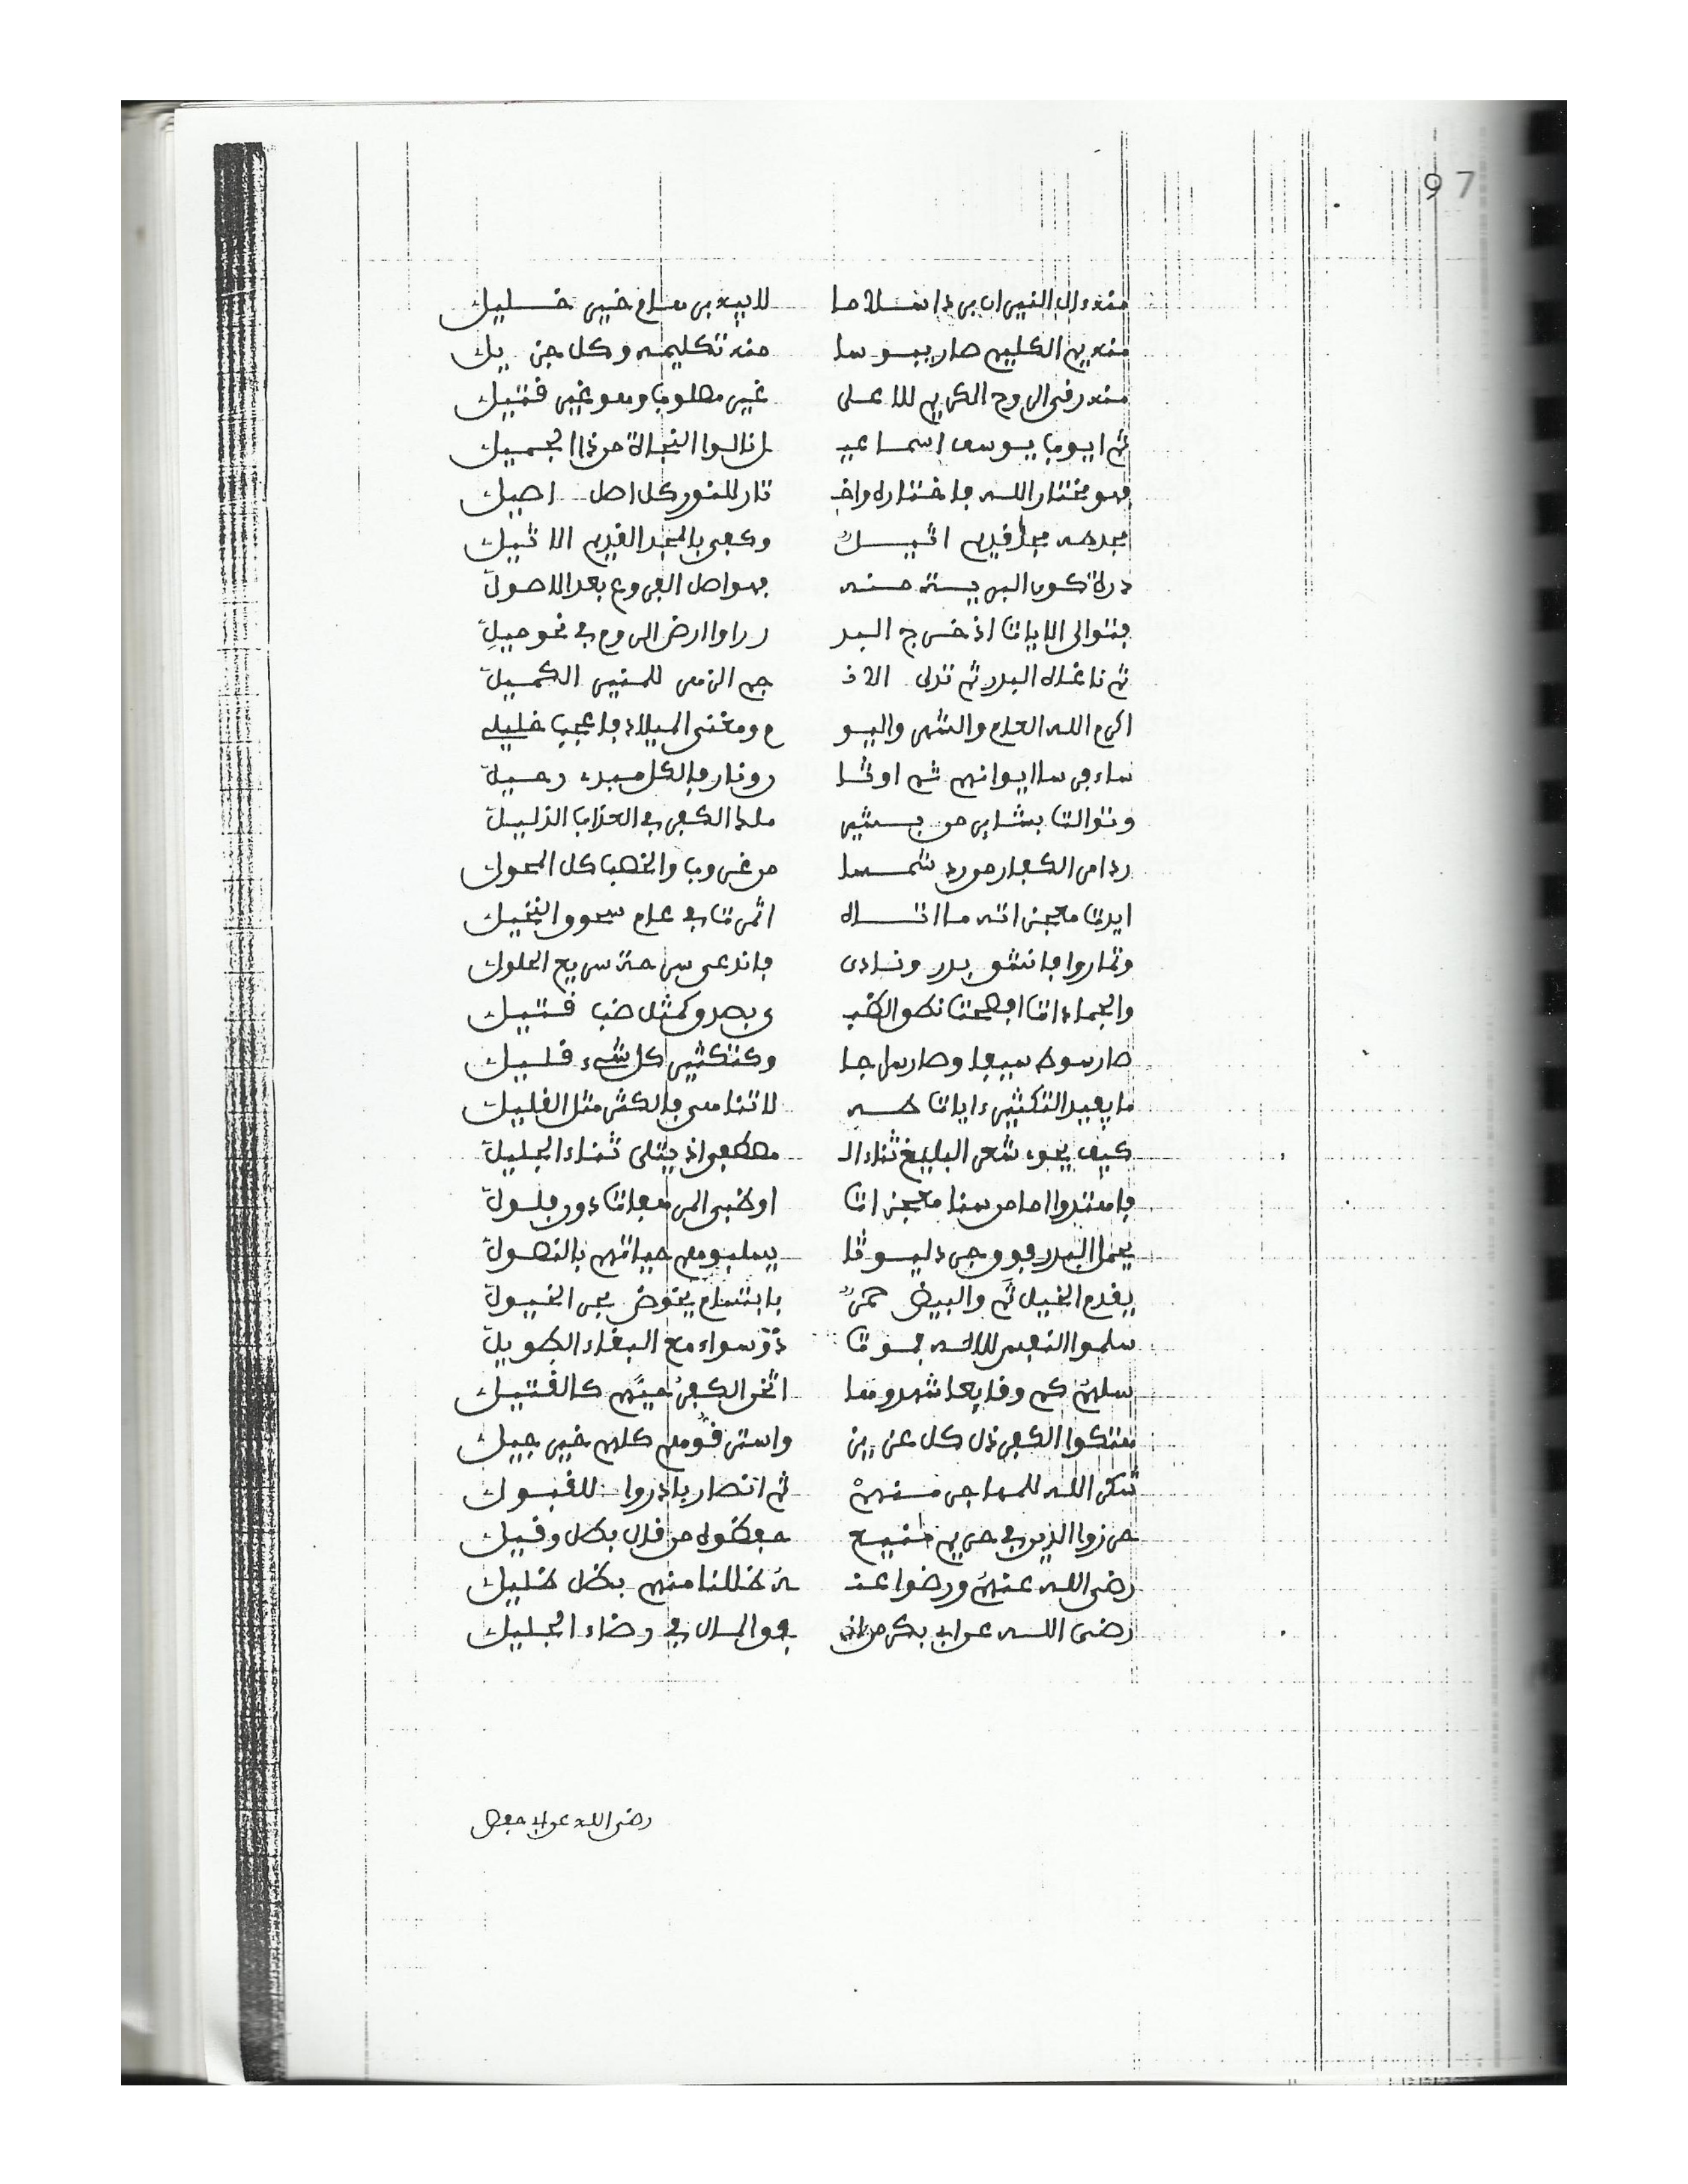 97
منه ءال النيران برداسلاما لابيه ابراهام خير خليل
منه يم الكليم صار يبوسا منه تكليمه وكل جزيل
منه رقى الروح الكريم للاعلى غير مصلوب وهو غير قتيل
ثم ايوب يوسف اسماعيـ ل نالوا النجاة من ذا الجميل
فهو مختار الله فاختاره واخـ تار للنور كل اصل اصيل
مجده مجد قديم اثيل وكفى بالمجد القديم الاثيل
درة كون البرية منه فهو اصل الفروع بعد الاصول
فتوالى الايات اذ خرج البد ر راوا ارض الروم في نحو ميل
ثم ناغاه البدر ثم تدلى الانـ جم الزهر للمنير الكميل
اكرم الله العام والشهر واليو م ومغنى الميلاد فاعجب خليل
ساء فرسا ايوانهم ثم اوثا ر ونار فالكل مبدء
وتوالت بشاير من بشير ملا الكفر في العذاب الذليل
رد امر الكفار من رد شمسا من غروب والخصب كل المحول
ايدت معجزاته ما اتاه اثمرت في عام سحوق النخيل
وتماروا فانشق بدر ونادى فاندعى سرحة سريع الحلول
والجمادات افصحت نطق الضبـ ي بصدق كمثل ضب قتيل
صار سوط سيفا وصار سراجا وكتكثير كل شيء قليل
ما يفيد التكثير ءايات طه لا تناهى فالكثر مثل القليل
كيف يحوي شعر البليغ ثناء الـ مصطفى اذ يتلى ثناء الجليل
فاهتدوا اما من سنا معجزات او ظبى المرهفات دون فلول
يحمل البدر فوق جرد ليوثا يسلبوهم حياتهم بالنصول
يقدم الخيل ثم والبيض حمر بابتسام يخوض بحر الخيول
سلموا النفس للاله فموت ذو سواء مع البقاء الطويل
سلهم كم وقايعا شهدوها اثخن الكفر حيهم كالقتيل
هتكوا الكفر ذل كل عزيز واسترقوهم كلهم خير جيل
شكر الله للمهاجر منهم ثم انصار بادروا للقبول
حرزوا الدين في حريم منيع حفظوه من قال بكل وقيل
رضي الله عنهم ورضوا عنـ ه ظللنا منهم بظل ظليل
رضي الله عن ابي بكر من انـ فق المال في رضاء الجليل
رضي الله عن ابي حفص